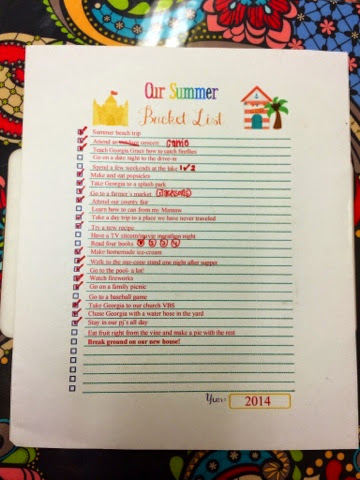 Our Summer
Bucket List
Summer beach trip
Attend an concert Camo
Teach Georgia Grace how to catch fireflies
Go on a date night to the drive-in
Spend a few weekends at the lake 1 2
Make and eat popsicles
Take Georgia to a splash park
Go to a farmer's market
Attend our county fair
Learn how to can from my Mamaw
Take a day trip to a place we have never traveled
Try a new recipe
Have a TV sitcom/movie marathon night
Read four books 1 2 3 4
Make homemade ice-cream
Walk to the sno-cone stand one night after supper
Go to the pool- a lot!
Watch fireworks
Go on a family picnic
Go to a baseball game
Take Georgia to our church VBS
Chase Georgia with a water hose in the yard
Stay in our pj's all day
Eat fruit right from the vine and make a pie with the rest
Break ground on our new house!
Year: 2014